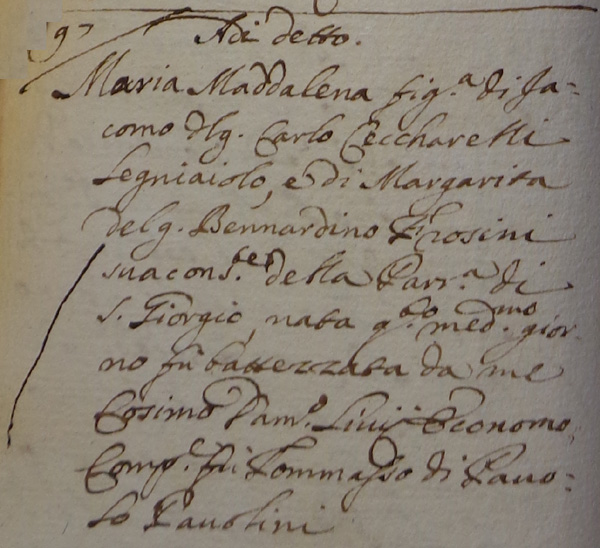 97 Adi detto.
Maria Maddalena fig.a di Ja=
como dlg. Carlo Ceccharelli
legniaiolo, e di Margarita
del g. Bennardino Frosini
sua cons.te della Parr.a di
S. Giorgio, nata q.sto med.mo gior-
no fù battezzata da me
Cosimo Dam.o Livij Economo,
Comp.e fù Tommasso di Pavo=
lo Pavolini